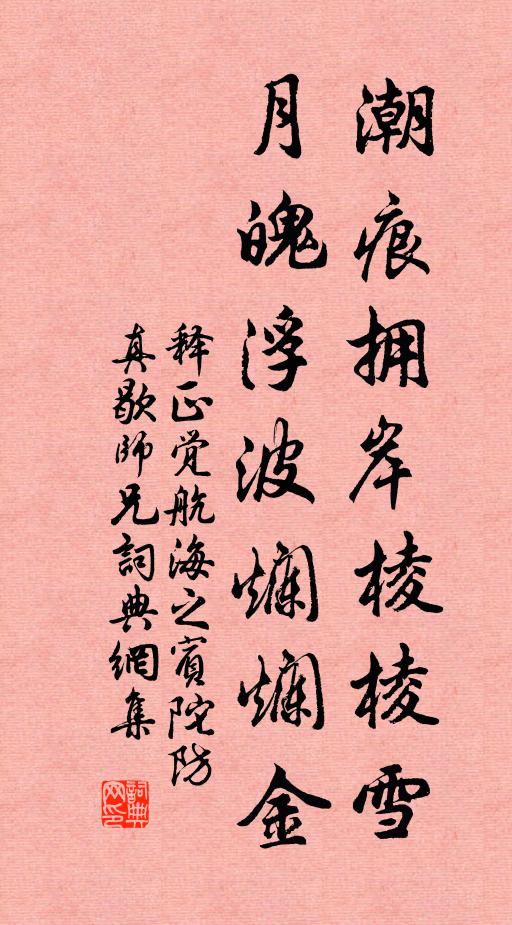 潮痕拥岸棱棱雪
月魄浮波烂烂金
释正觉航海之宾陀防
真歇师兄詞典網集
詞典网印